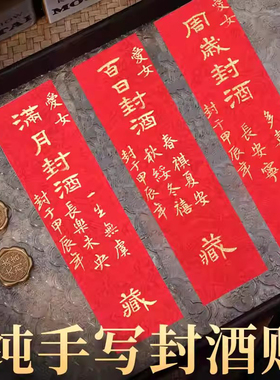 愛女
滿月封酒
一生無虞
長樂未央
封于甲辰年
藏
愛女
百日封酒
春祺夏安
秋綏冬禧
封于甲辰年
藏
愛女
周歲封酒
多
長安寧
封于甲辰年
藏
纯手写封酒贴